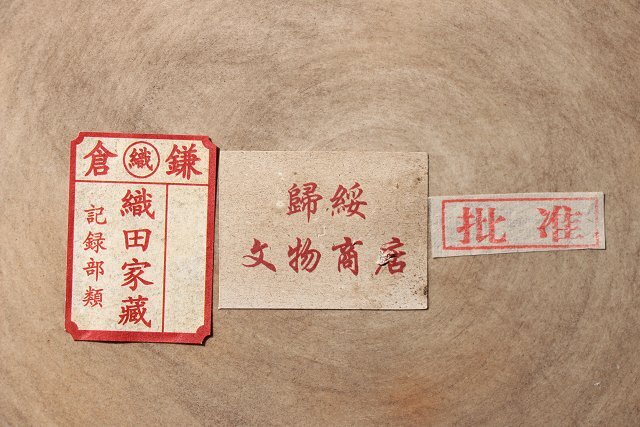 鎌 織 倉
織田家藏
記録部類
歸綏
文物商店
批准